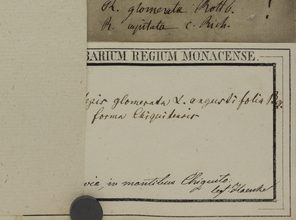 R. glomerata Rottb.
R. capitata C. Rich.
BARIUM REGIUM MONACENSE.
glomerata L. angustifolia
forma Chiquitensis
in montibus Chiquito